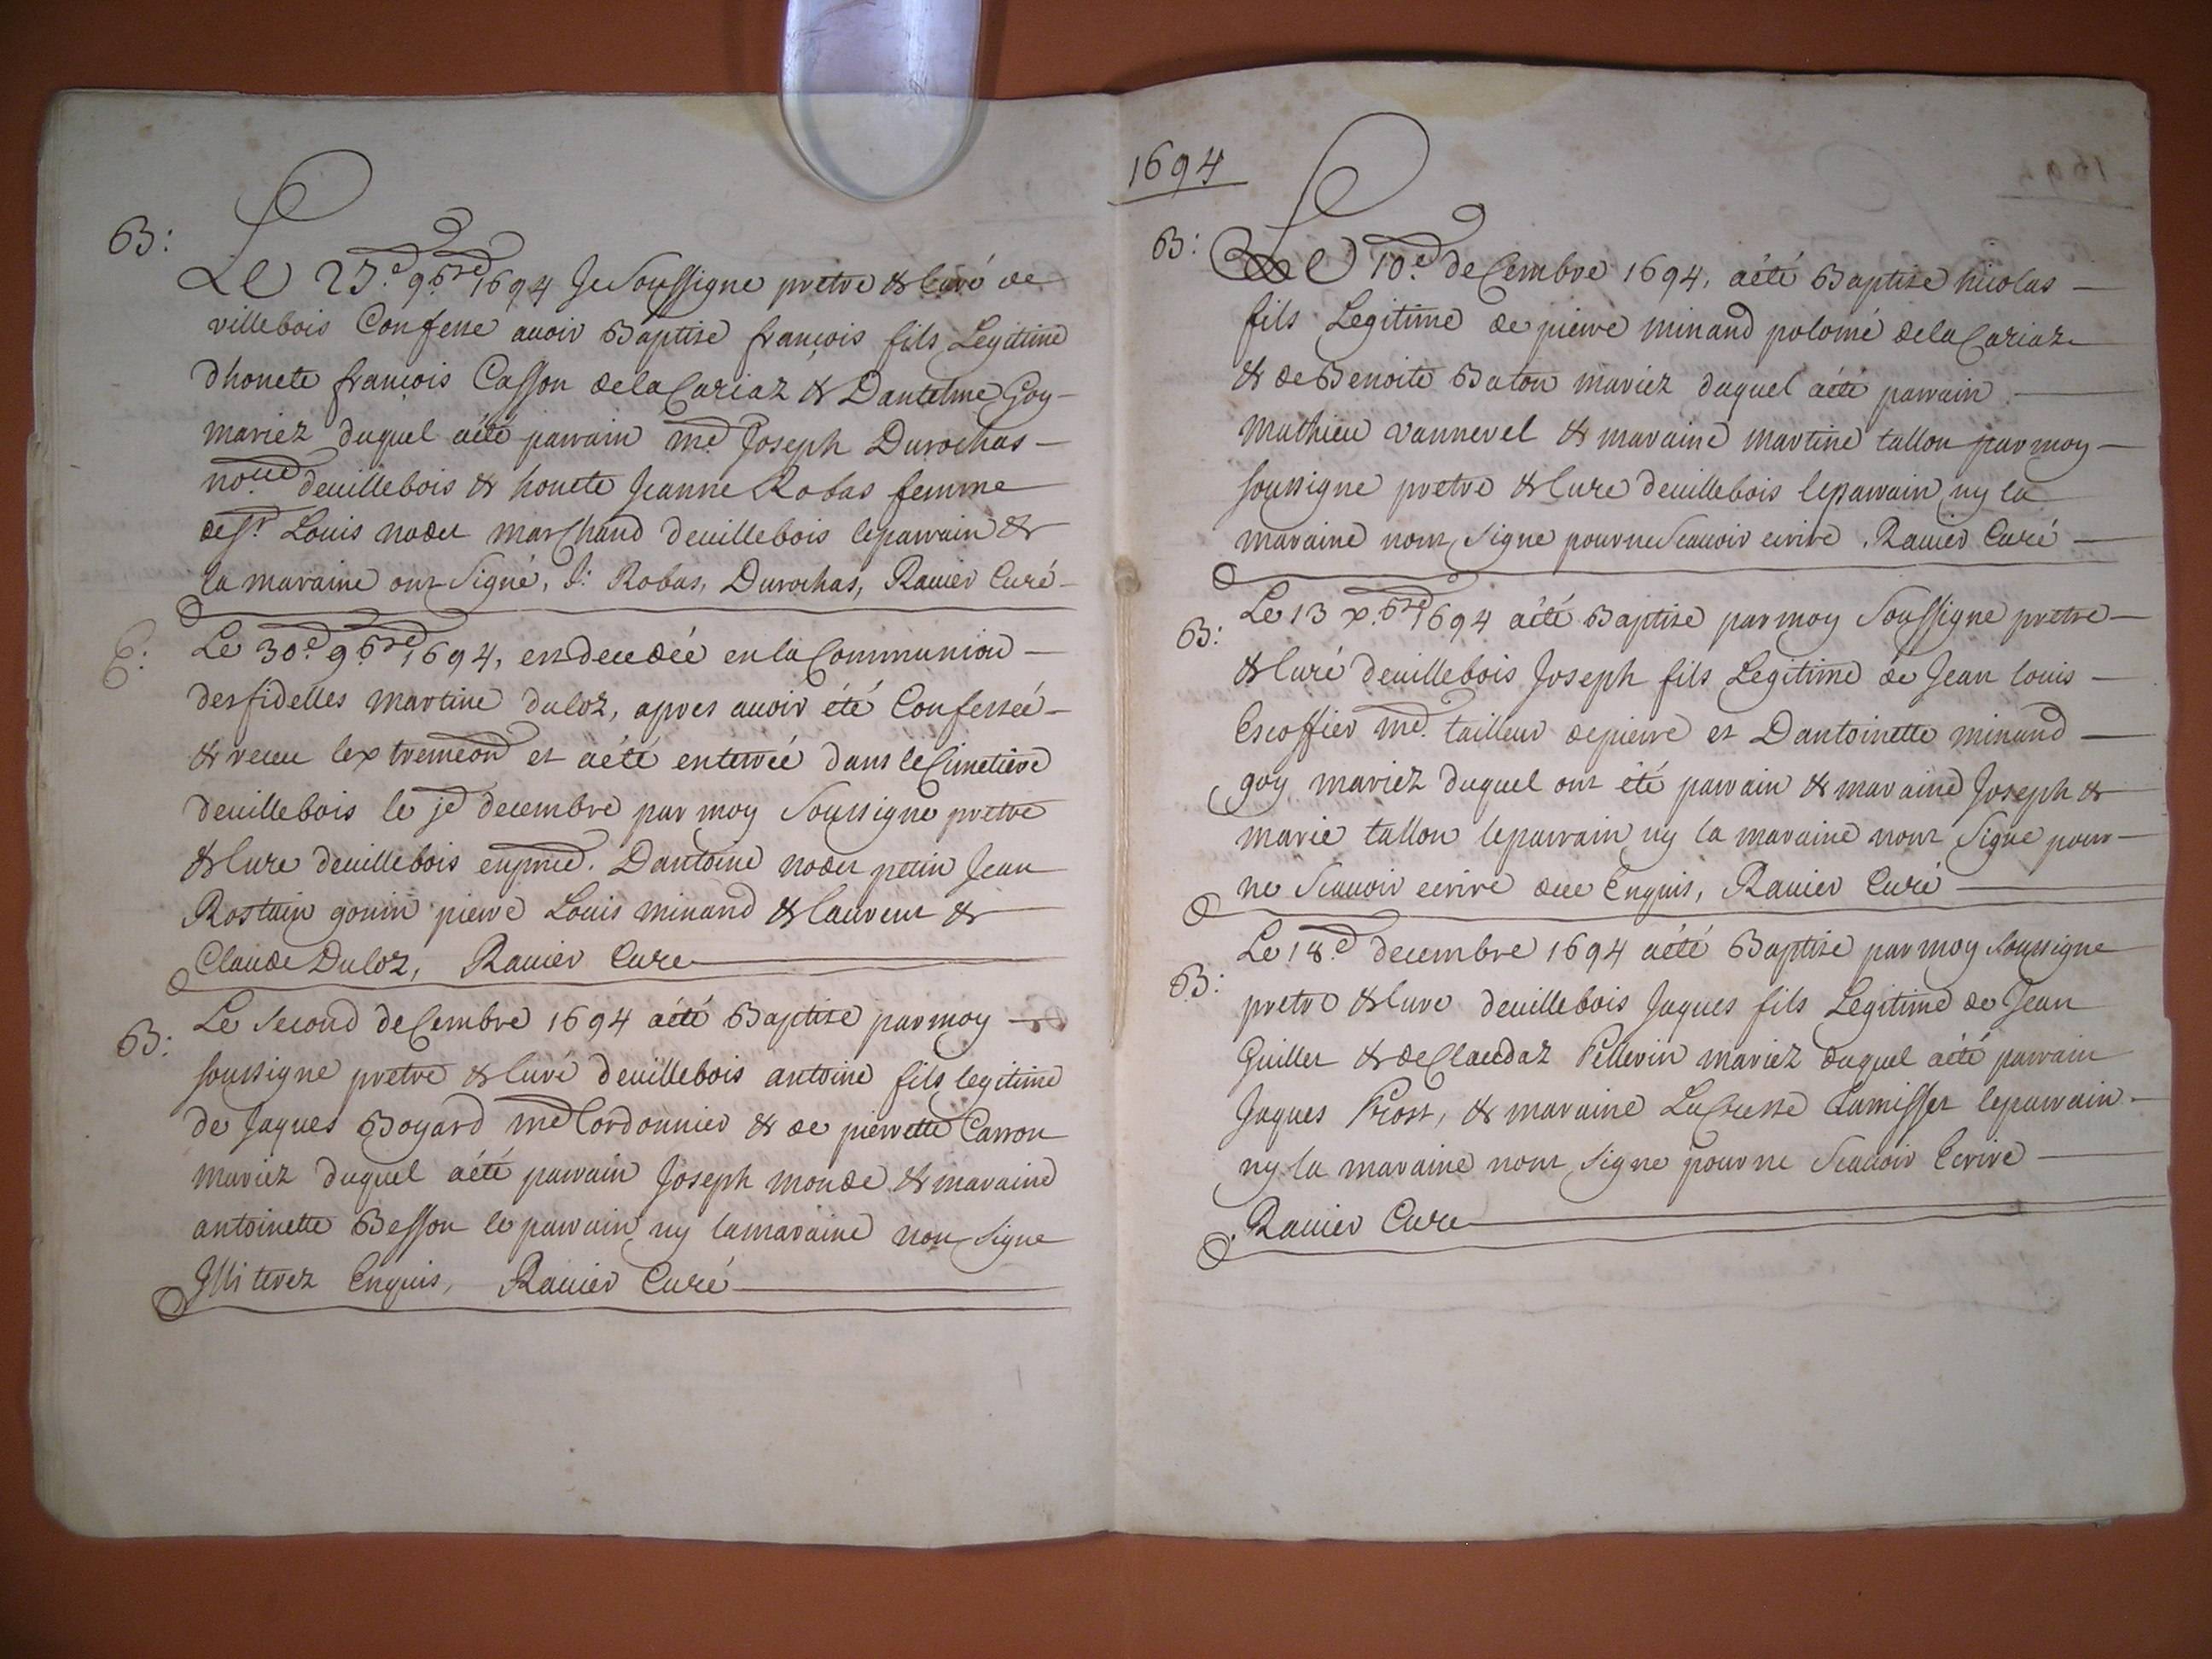 B:
Le 25.e 9.bre 1694 Je Soussigne pretre & Curé de
villebois Confesse auoir Baptise françois fils Legitime
dhonete françois Casson delaCariaz & Dantelme Goy
mariez duquel aété parrain me. Joseph Durochas
no.re deuillebois & honete Jeanne Robas femme
deSr. Louis nodet marChand deuillebois leparrain &
la maraine ont Signé, J: Robas, Durochas, Rauier Curé
E:
Le 30.e 9.bre 1694, est decedée enlaCommunion
desfidelles martine duloz, apres auoir été Confessée
& receu lextremeon et aété enterrée dans leCimetiere
deuillebois le je decembre par moy Soussigne pretre
& Cure deuillebois enpnce. Dantoine nodet petit Jean
Rostain gonin pierre Louis minand & laurent &
Claude Duloz, Rauier Cure
B:
Le Second deCembre 1694 aété Baptise parmoy
soussigne pretre & Curé deuillebois antoine fils legitime
de Jaques Boyard me Cordonnier & de pierrette Carron
mariez duquel aété parrain Joseph monde & maraine
antoinette Besson le parrain ny lamaraine non Signe
Illiterez Enquis, Rauier Curé
1694
B:
Le 10.e deCembre 1694, aété Baptise nicolas
fils Legitime de pierre minand polomé delaCariaz
& deBenoite Baton mariez duquel aété parrain
mathieu vannerel & maraine martine tallon parmoy
soussigne pretre & Cure deuillebois leparrain ny la
maraine nont Signe pourneScauoir ecrire, Rauier Curé
B:
Le 13 x.bre 1694 aété Baptise parmoy Soussigne pretre
& Curé deuillebois Joseph fils Legitime de Jean louis
Escoffier me. tailleur depierre et Dantoinette minand
goy mariez duquel ont été parrain & maraine Joseph &
marie tallon leparrain ny la maraine nont Signe pour
ne Scauoir ecrire dee Enquis, Rauier Curé
B:
Le 18.e decembre 1694 aété Baptise parmoy soussigne
pretre & Cure deuillebois Jaques fils Legitime de Jean
Guillet & deClaudaz Pellerin mariez duquel aété parrain
Jaques Prost, & maraine LuCresse Ramisset leparrain
ny la maraine nont Signe pour ne Scauoir Ecrire
Rauier Cure